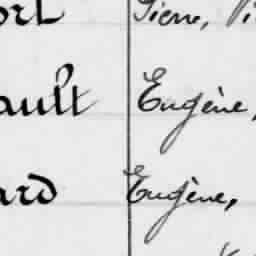 ort Pierre,
ault Eugène,
ard Eugène,